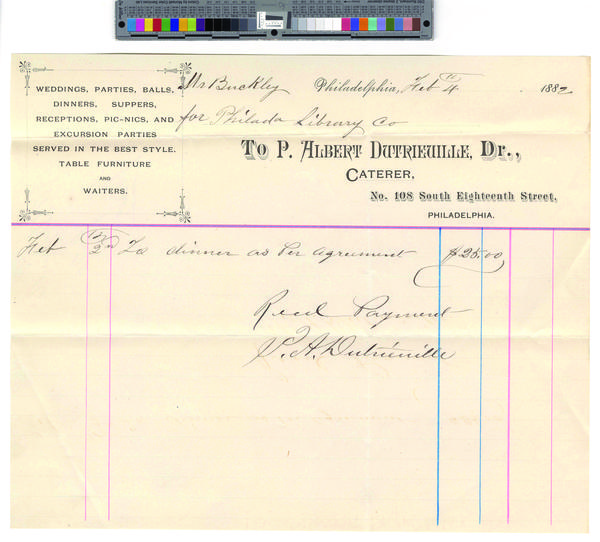 WEDDINGS, PARTIES, BALLS,
DINNERS, SUPPERS,
RECEPTIONS, PIC-NICS, AND
EXCURSION PARTIES
SERVED IN THE BEST STYLE.
TABLE FURNITURE
AND
WAITERS.
Mr Buckley Philadelphia, Feb 4th 1882
for Philada Library Co
To P. Albert Dutrieuille, Dr.,
Caterer,
No. 108 South Eighteenth Street,
PHILADELPHIA.
Feb 2nd To dinner as per agreement $25.00
Recd Payment
P. A. Dutrieuille